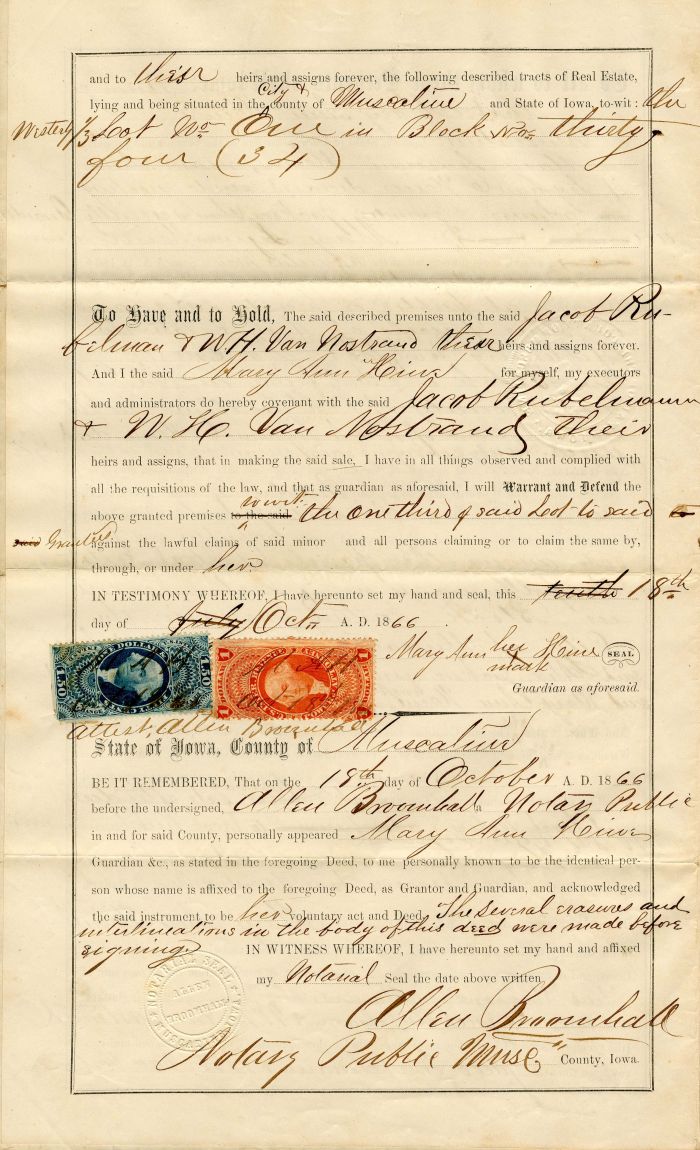 and to their heirs and assigns forever, the following described tracts of Real Estate,
City &
lying and being situated in the county of Muscatine and State of Iowa, to-wit: the
Westerly 1/3 Loot No One in Block No thirty
four (34)
To Have and to Hold, The said described premises unto the said Jacob Ru-
belman & W H. Van Nostrand their heirs and assigns forever.
And I the said Mary Ann Hine for myself, my executors
and administrators do hereby covenant with the said Jacob Rubelmann
& W. H. Van Nostrand their
heirs and assigns, that in making the said sale, I have in all things observed and complied with
all the requisitions of the law, and that as guardian as aforesaid, I will Warrant and Defend the
to wit:
above granted premises to the said the one third of said Lot to said
said Grantees against the lawful claims of said minor and all persons claiming or to claim the same by,
through, or under her
IN TESTIMONY WHEREOF, I have hereunto set my hand and seal, this tenth 18th
day of July Oct A. D. 1866
Mary Ann her Hine SEAL
mark
Guardian as aforesaid.
Attest, Allen Broomhall
State of Iowa, County of Muscatine
BE IT REMEMBERED, That on the 18th day of October A. D. 1866
before the undersigned, Allen Broomhall a Notary Public
in and for said County, personally appeared Mary Ann Hine
Guardian &c., as stated in the foregoing Deed, to me personally known to be the identical per-
son whose name is affixed to the foregoing Deed, as Grantor and Guardian, and acknowledged
the said instrument to be her voluntary act and Deed. The several erasures and
interlineations in the body of this deed were made before
signing. IN WITNESS WHEREOF, I have hereunto set my hand and affixed
my Notarial Seal the date above written.
Allen Broomhall
Notary Public Musc County, Iowa.
NOTARIAL SEAL
ALLEN
BROOMHALL